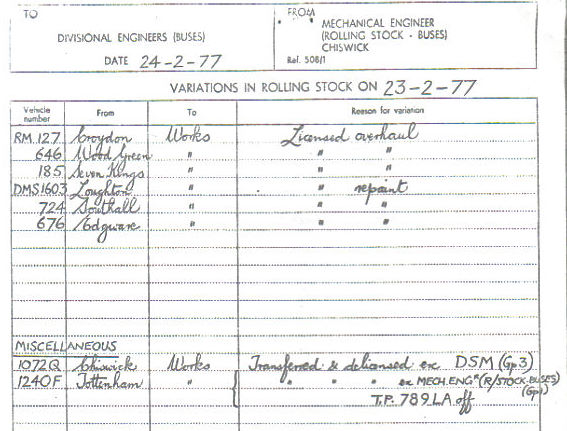 TO
FROM
DIVISIONAL ENGINEERS (BUSES)
DATE 24-2-77
MECHANICAL ENGINEER
(ROLLING STOCK - BUSES)
CHISWICK
Ref. 508/1
VARIATIONS IN ROLLING STOCK ON 23-2-77
Vehicle number From To Reason for variation
RM 127 Croydon Works Licensed overhaul
646 Wood Green " " "
185 Seven Kings " " "
DMS1603 Loughton " " repaint
724 Southall " " "
676 Edgware " " "
MISCELLANEOUS
1072Q Chiswick Works Transferred & delicensed ex DSM (Gp3)
1240F Tottenham " " " " ex MECH.ENGR (R/STOCK-BUSES)
(Gp1)
T.P. 789.LA off